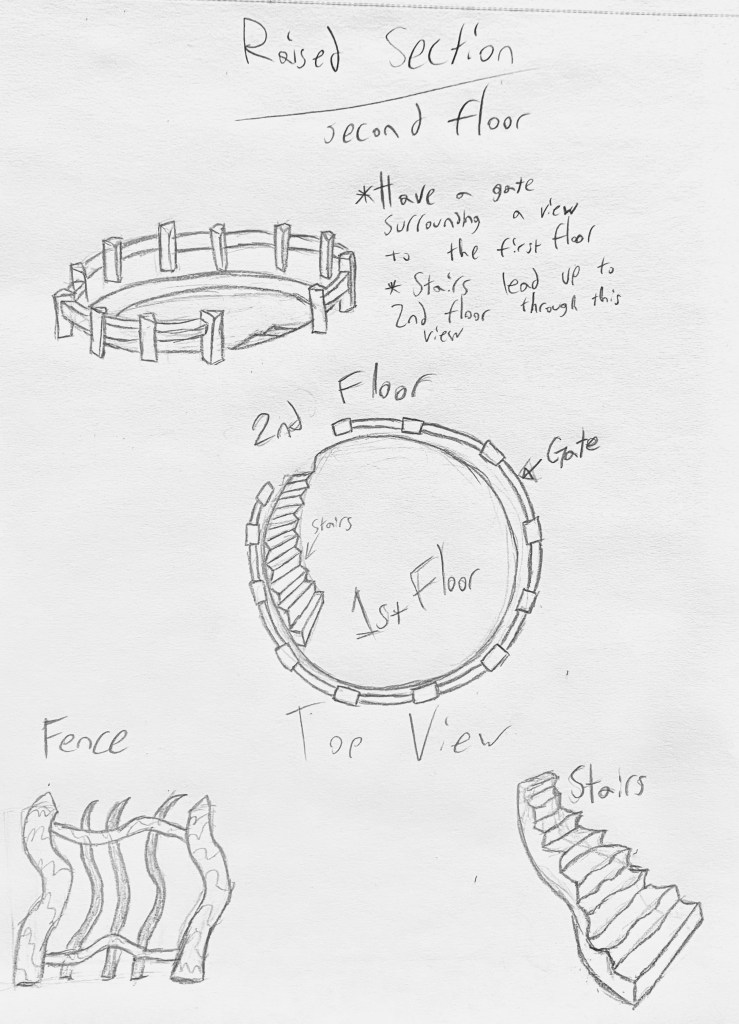 Raised Section
second floor
*Have a gate
surrounding a view
to the first floor
* Stairs lead up to
2nd floor through this
view
2nd Floor
Gate
stairs
1st Floor
Top View
Fence
Stairs